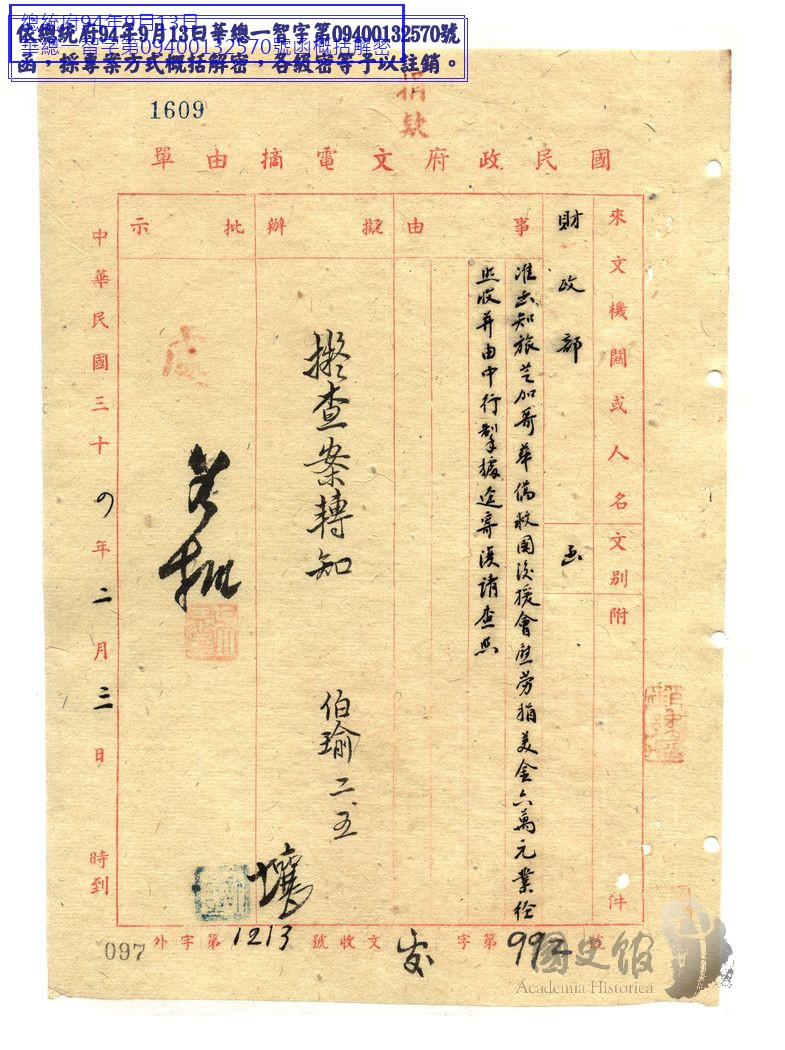 總統府94年9月13日
華總一智字第09400132570號函概括解密
依總統府94年9月13日華總一智字第09400132570號
函，採專案方式概括解密，各級密等予以註銷。
1609
捐款
國民政府文電摘由單
來文機關或人名
文別
附件
財政部
函
事由
准函知旅芝加哥華僑救國後援會慰勞捐美金六萬元業經
照收并由中行掣據逕寄復請查照
擬辦
擬查案轉知
伯瑜二、五
批示
如批
中華民國三十四年二月三日時到
外字第1213號
收文
字第992號
097
國史館
Academia Historica